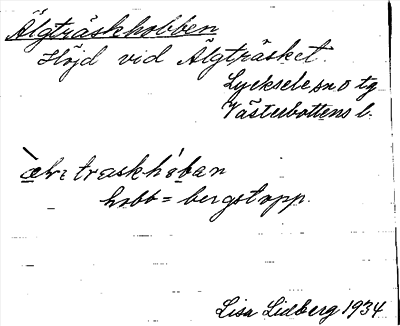 Älgträskhobben
Höjd vid Älgträsket.
Lycksele sn o tg
Västerbottens l.
hobb = bergstopp.
Lisa Lidberg 1934